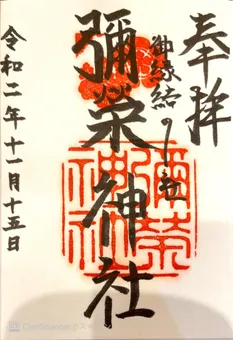 奉拝
御縁結の社
彌榮神社
彌榮神社
令和二年十一月十五日
CamScanner